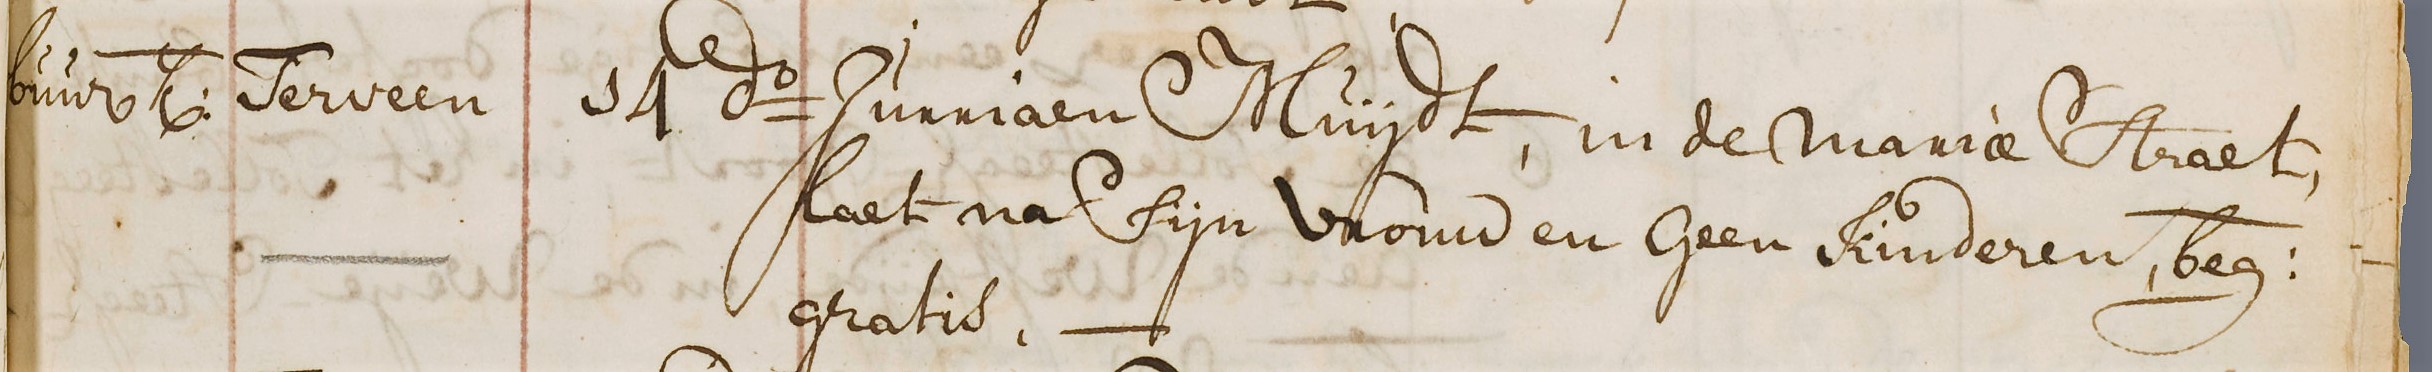 buurk: Terveen 14 do Jurriaen Muijdt, in de Mariæ Straet,
laet na Sijn Vrouw en Geen Kinderen, beg:
gratis. —